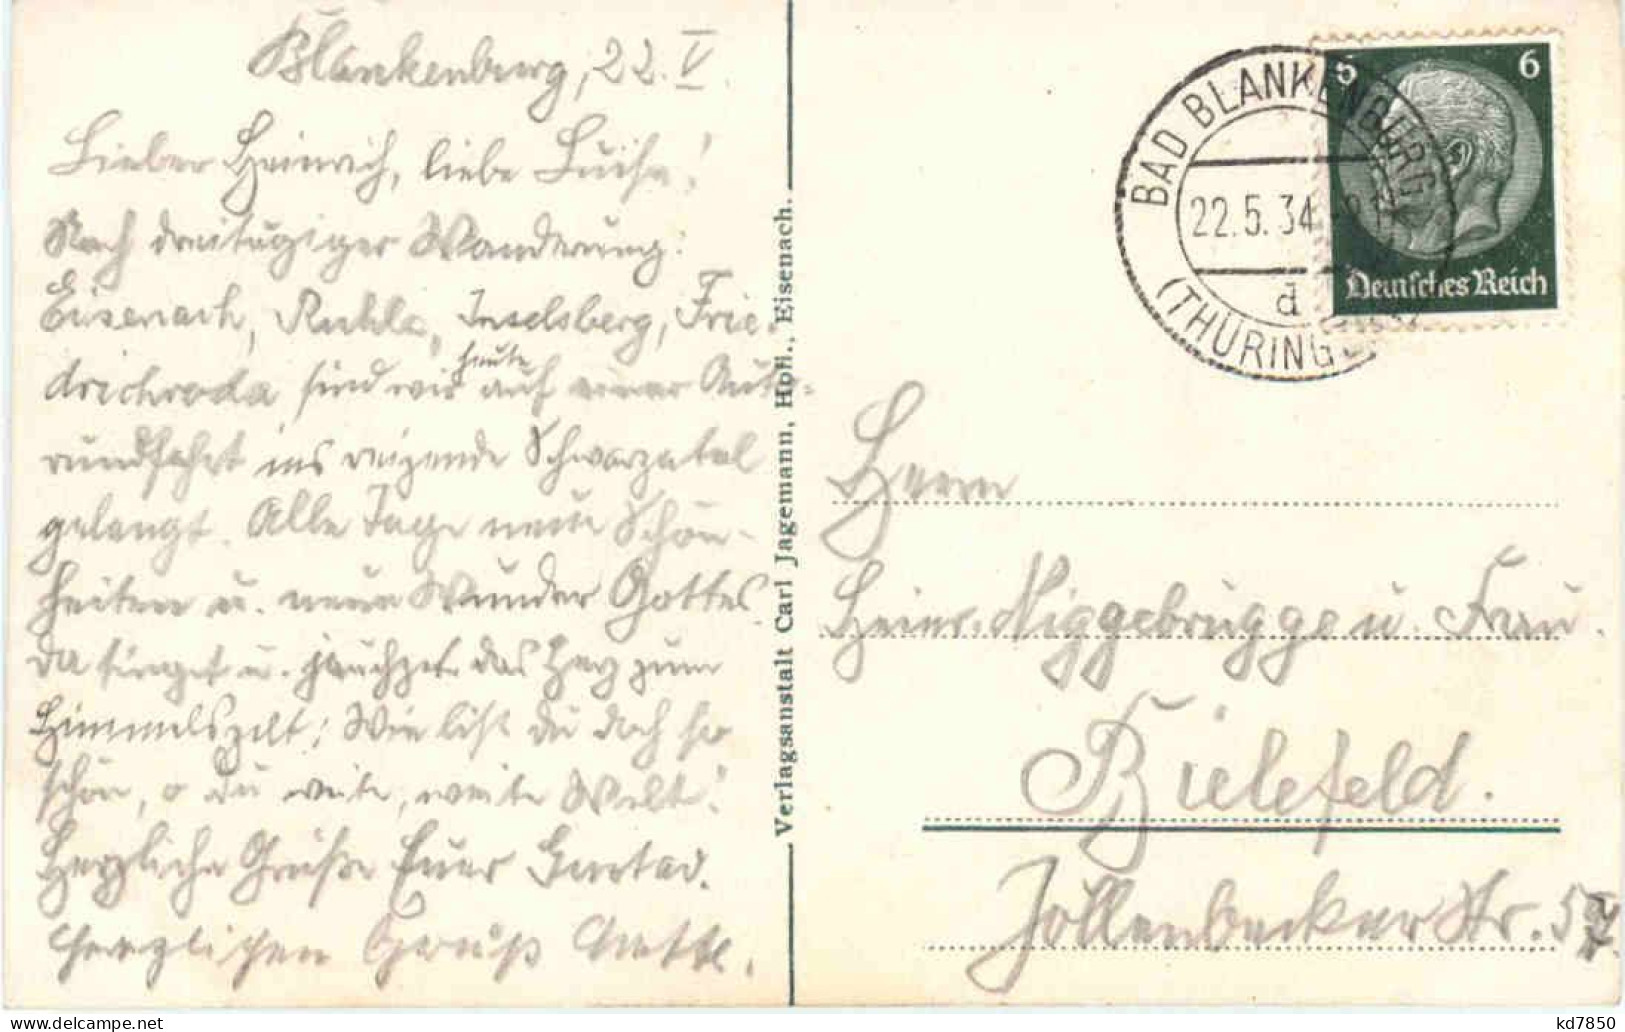 Blankenburg, 22. V.
Lieber Heinrich, liebe Luise!
Nach dreitägiger Wanderung:
Eisenach, Ruhla, Inselsberg, Frie-
drichroda sind wir heute auf einer Auto-
rundfahrt ins reizende Schwarzatal
gelangt. Alle Tage neue Schön-
heiten u. neue Wunder Gottes.
Da singet u. jauchzet das Herz zum
Himmelszelt: Wie bist du doch so
schön, o du weite, weite Welt!
Herzliche Grüße Euer
Herzlichen Gruß
Verlagsanstalt Carl Jagemann, Hofl., Eisenach.
BAD BLANKENBURG
22.5.34
d
(THÜRING
6 6
Deutsches Reich
Herrn
Heinr. Niggebrügge u. Frau.
Bielefeld.
Jöllenbecker Str. 57
kd7850